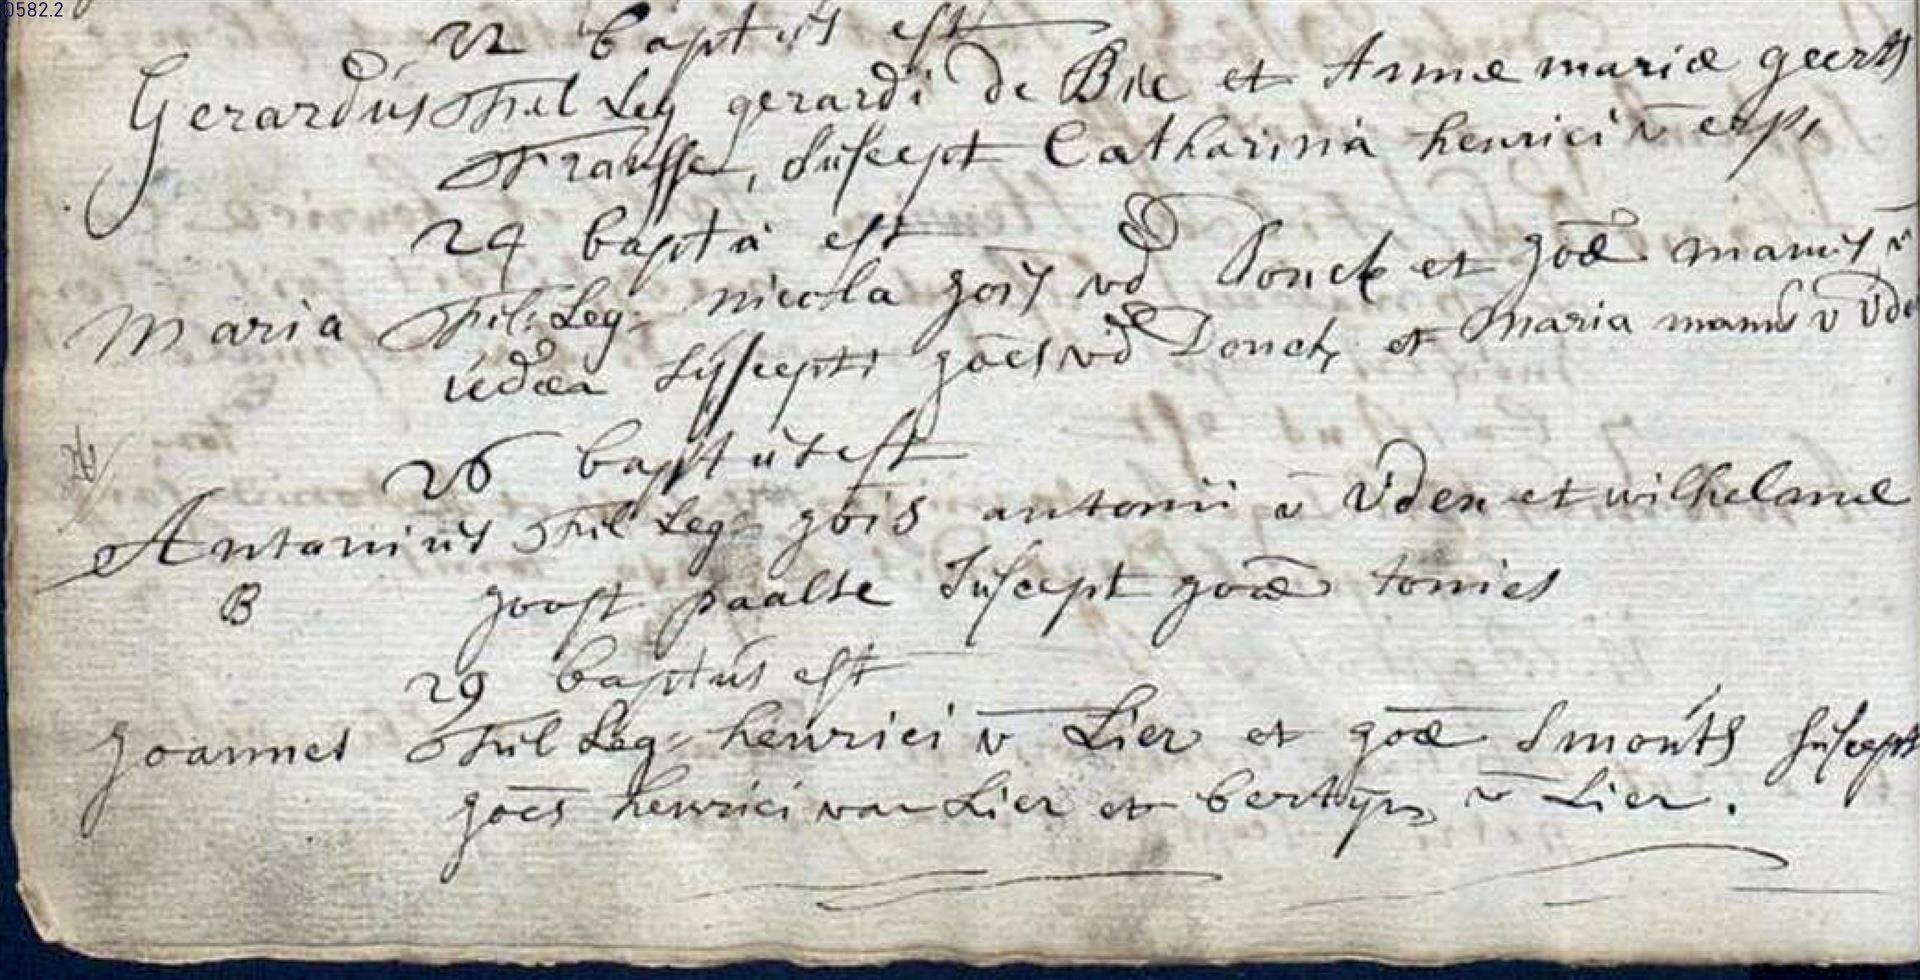 0582.2
22 baptus est
Gerardus Fil Leg gerardi de Bie et Annæ mariæ geerts
Fransse, suscept Catharina henrici v erp,
24 bapta est
Maria Fil: Leg: nicola gois vd Donck et goæ manus v
udæn susscepti goes vd Donck et Maria manus v Ude
26 baptus est
Antonius Fil Leg gois antonii v Uden et wilhelmæ
B
goost paalse suscept goæ tonies
29 baptus est
Joannes Fil Leg henrici v Lier et goæ Smouts suscept
goes henrici van Lier et bertyn v Lier.